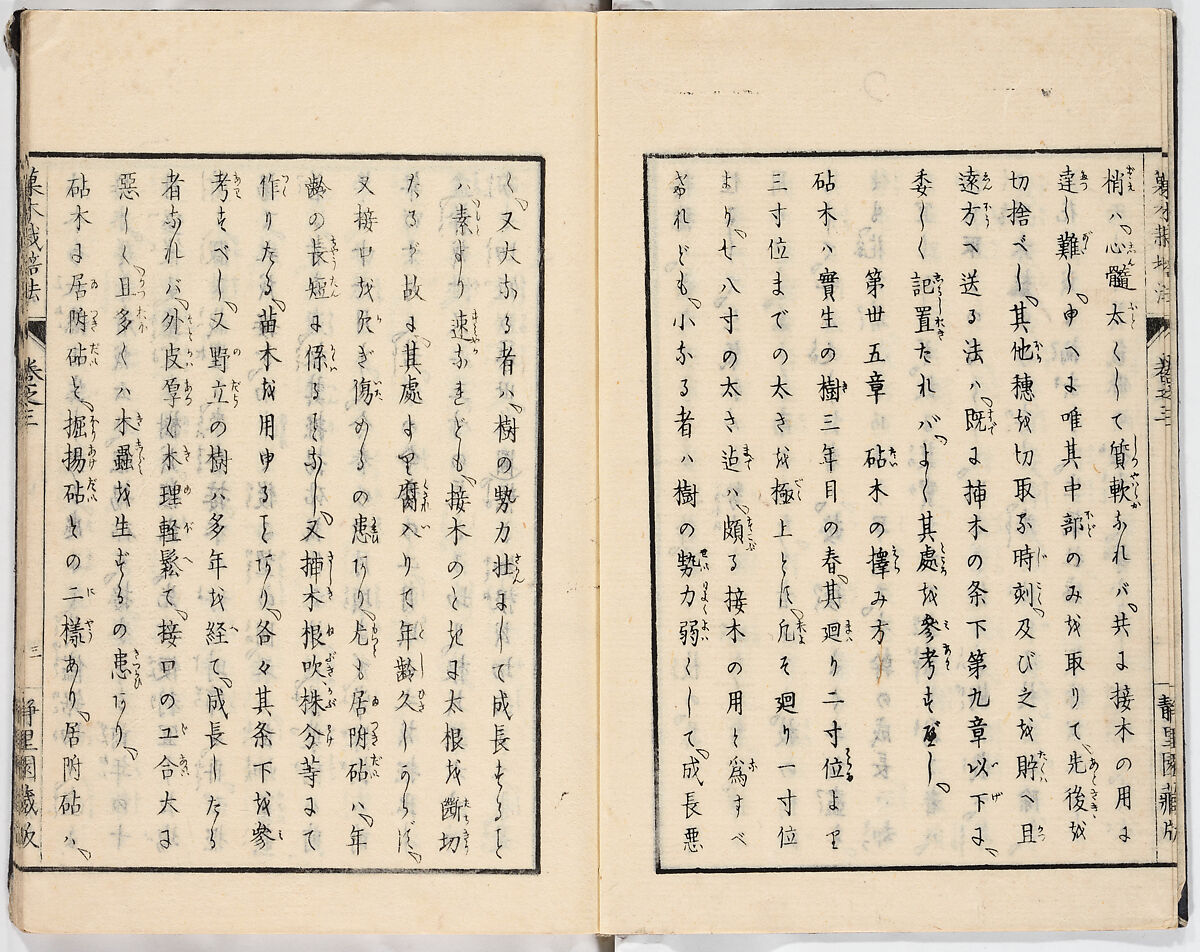 梢ハ、心髓太くして質軟なれバ、共に接木の用に
達し難し、申へに唯其中部のみを取りて、先後を
切捨べし、其他穗を切取る時刻、及び之を貯へ且
遠方へ送る法ハ、既に挿木の条下第九章以下に、
委しく記置たれバ、よく其處を參考すべし、
第丗五章　砧木の擇み方
砧木ハ實生の樹三年目の春、其廻り二寸位より
三寸位までの太さを極上とす、凡そ廻り一寸位
より、七八寸の太さ迠ハ、頗る接木の用と爲すべ
けれども、小なる者ハ樹の勢力弱くして、成長悪
く、又大なる者ハ、樹の勢力壮にして成長すること
ハ、素より速なれども、接木のときに太根を斷切
たるが故に、其處より腐入りて年齢久しからず、
又接中を欠ぎ傷めるの患あり、尤も居附砧ハ、年
齢の長短に係るとなし、又挿木根吹株分等にて
作りたる、苗木を用ゆることあり、各々其条下を參
考すべし、又野立の樹ハ多年を経て、成長したる
者なれバ、外皮厚く木理軽鬆て、接口の工合大に
惡しく、且多くハ木蟲を生ずるの患あり、
砧木に居附砧と、掘揚砧との二樣あり、居附砧ハ、
菓木栽培法
卷之三
三
靜里園藏版